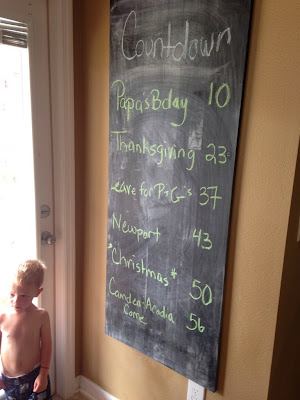 Countdown
Papa's Bday 10
Thanksgiving 23
Leave for P+G's 37
Newport 43
*Christmas* 50
Camden-Acadia 56
come